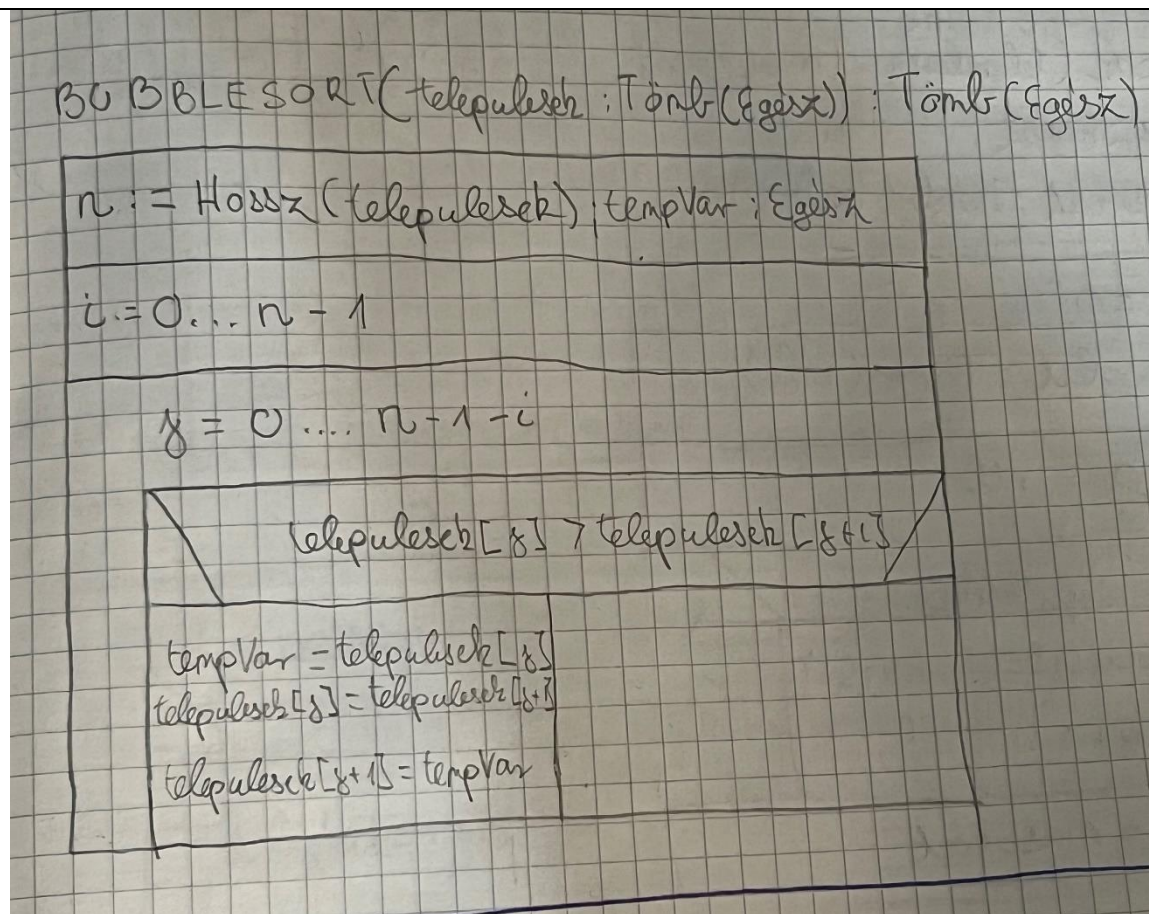 BUBBLESORT(telepulesek : Tömb(Egész)) : Tömb(Egész)
n := Hossz(telepulesek) ; tempVar : Egész
i = 0... n - 1
j = 0 .... n - 1 - i
telepulesek[j] > telepulesek[j+1]
tempVar = telepulesek[j]
telepulesek[j] = telepulesek[j+1]
telepulesek[j+1] = tempVar